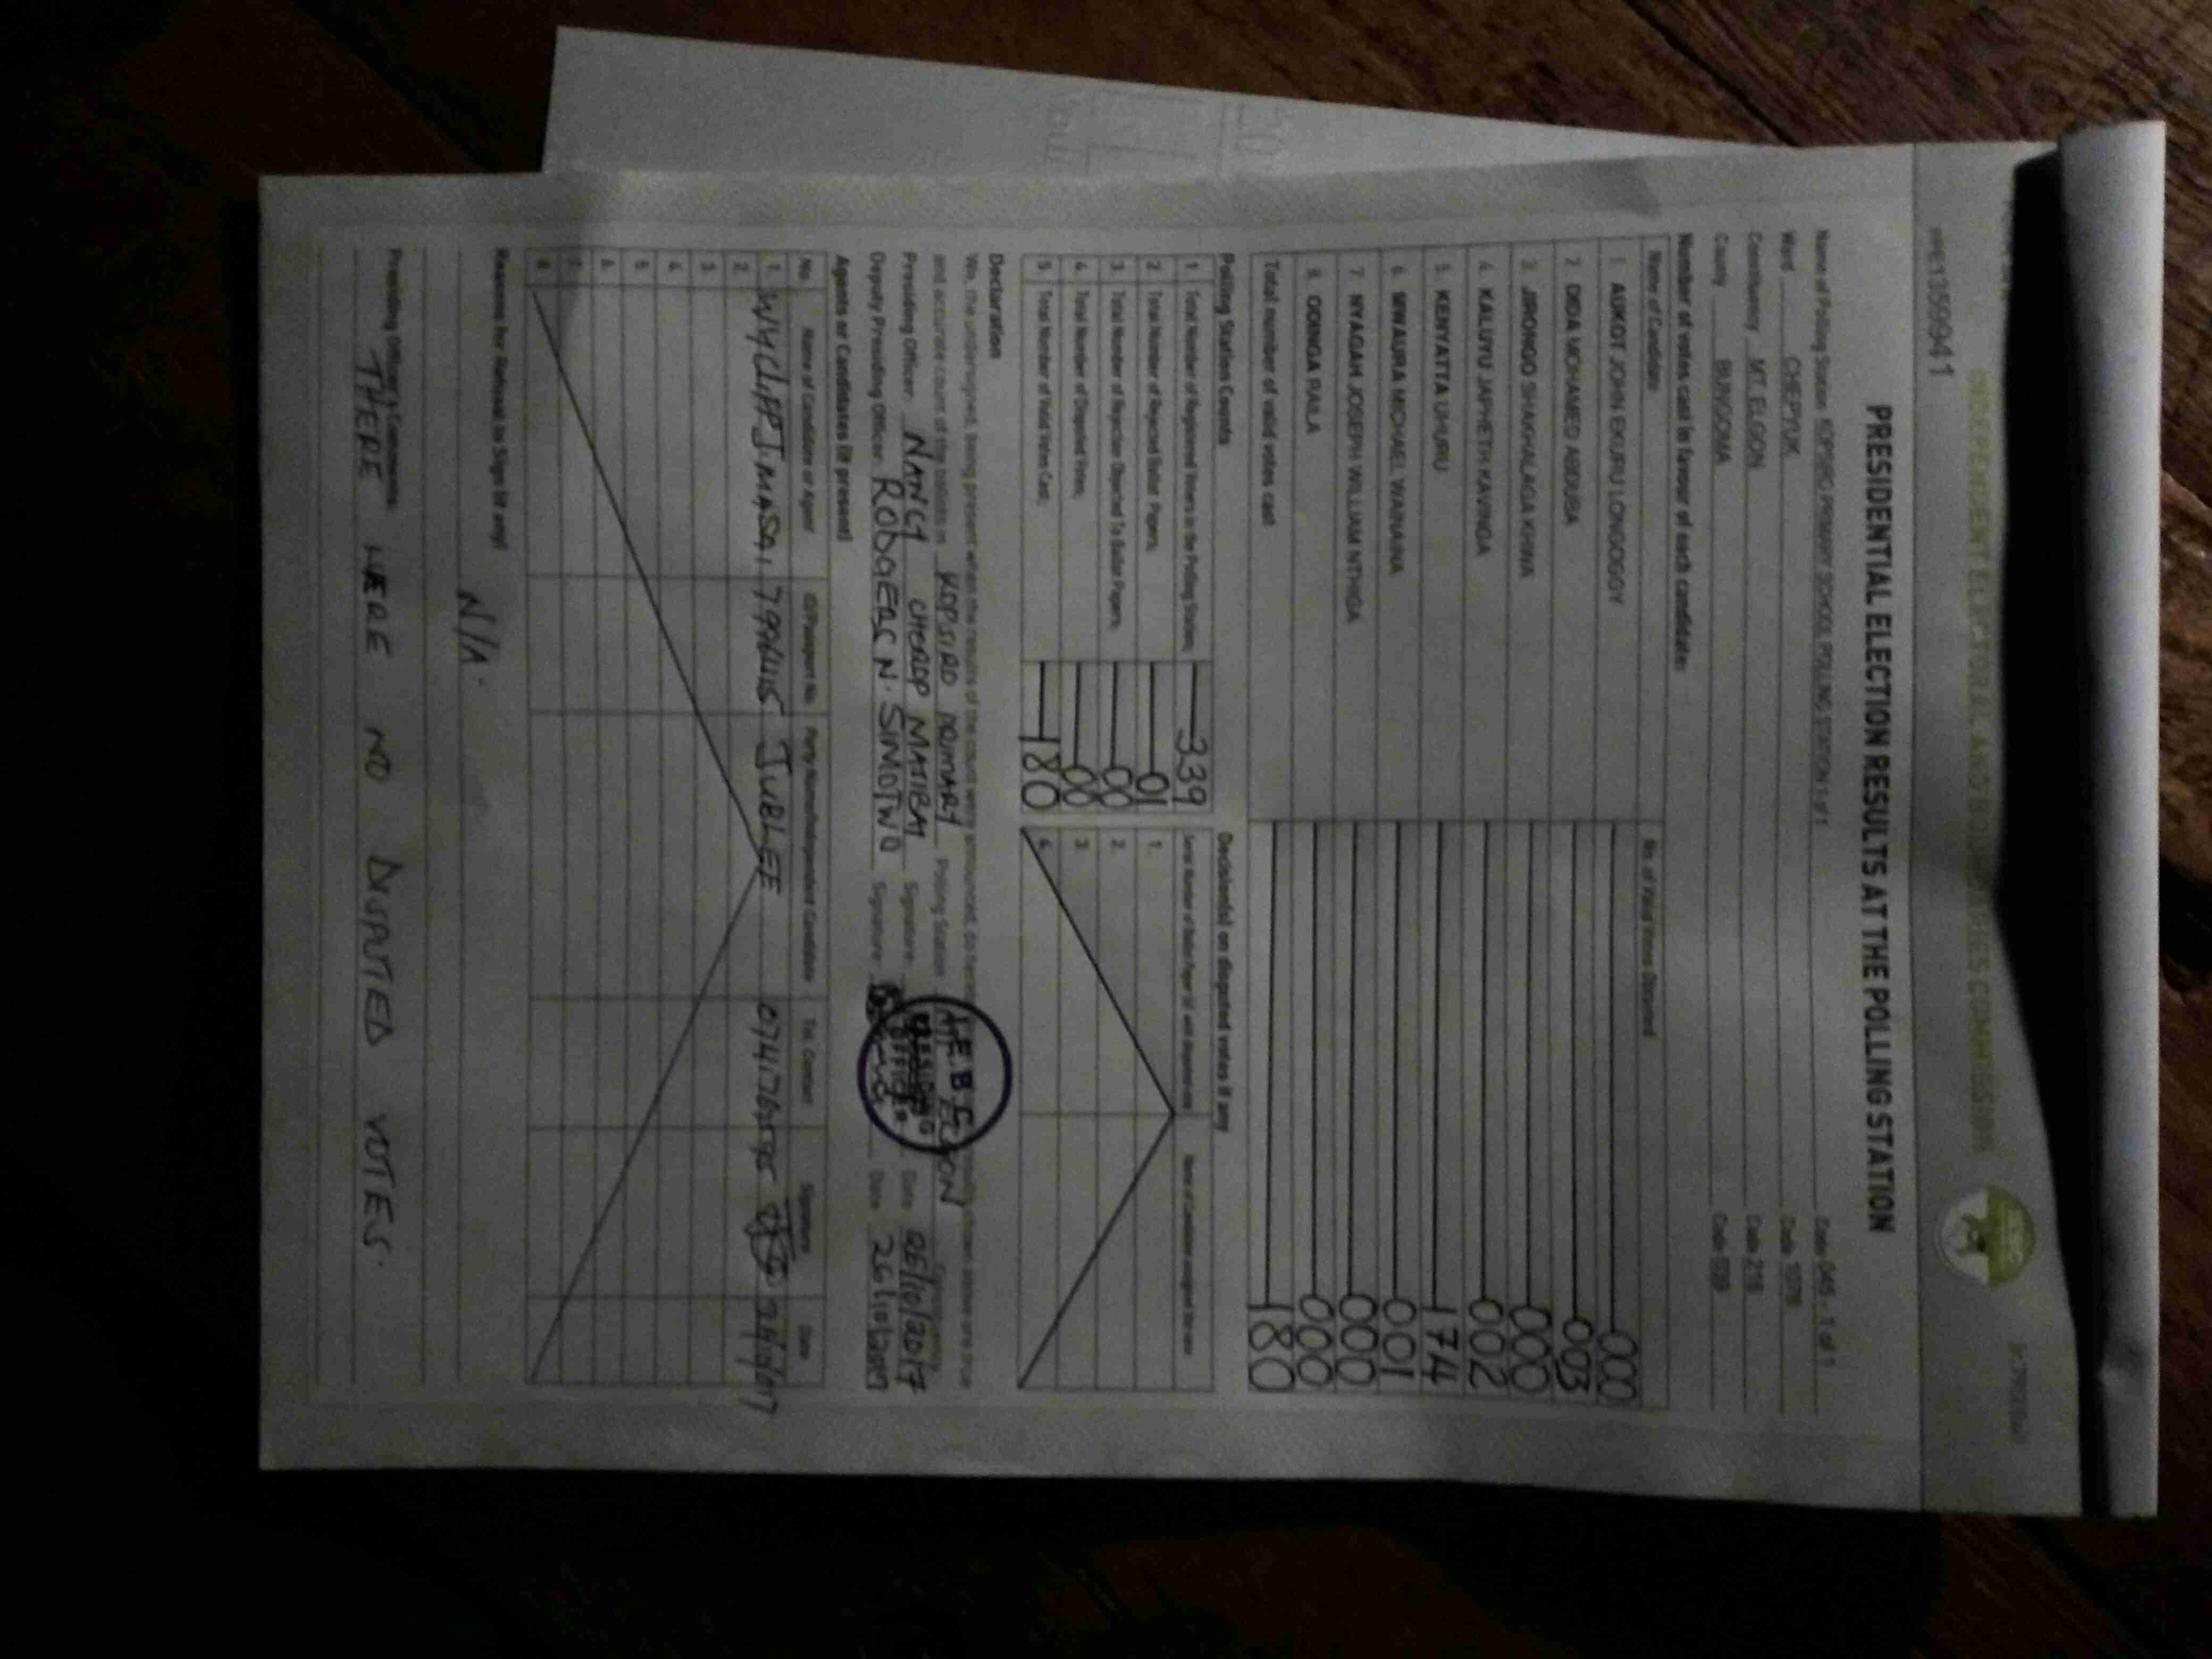 INDEPENDENT ELECTORAL AND BOUNDARIES COMMISSION
PRESIDENTIAL ELECTION RESULTS AT THE POLLING STATION
Name of Polling Station KOPSIRO PRIMARY SCHOOL POLLING STATION 1 of 1 Code 045 - 1 of 1
Ward CHEPYUK Code 1078
Constituency MT. ELGON Code 216
County BUNGOMA Code 039
Number of votes cast in favour of each candidate:
Name of Candidate No. of Valid Votes Obtained
1. AUKOT JOHN EKURU LONGOGGY 000
2. DIDA MOHAMED ABDUBA 003
3. JIRONGO SHAKHALAGA KHWA 000
4. KALUYU JAPHETH KAVINGA 002
5. KENYATTA UHURU 174
6. MWAURA MICHAEL WAINAINA 001
7. NYAGAH JOSEPH WILLIAM NTHIGA 000
8. ODINGA RAILA 000
Total number of valid votes cast 180
Polling Station Counts
1. Total Number of Registered Voters in the Polling Station; 339
2. Total Number of Rejected Ballot Papers; 01
3. Total Number of Rejection Objected To Ballot Papers; 00
4. Total Number of Disputed Votes; 00
5. Total Number of Valid Votes Cast; 180
Decision(s) on disputed votes if any
1.
2.
3.
4.
Declaration
We, the undersigned, being present when the results of the count were announced, do shown above are true
and accurate count of the ballots in KOPSIRO PRIMARY Polling Station MT ELGON
Presiding Officer NANCY CHEROP MATIBAI Signature Date 26/10/2017
Deputy Presiding Officer RObGERS N. SIMOTWO Signature Date 26/10/2017
I.E.B.C
PRESIDING
OFFICER
Agents or Candidates (if present)
No. Name of Candidate or Agent ID/Passport No. Party Name/Independent Candidate Tel. Contact Signature Date
1. JUBLEE
2.
3.
4.
5.
6.
7.
8.
Reasons for Refusal to Sign (if any)
N/A.
Presiding Officer's Comments
THERE WERE NO DISPUTED VOTES.